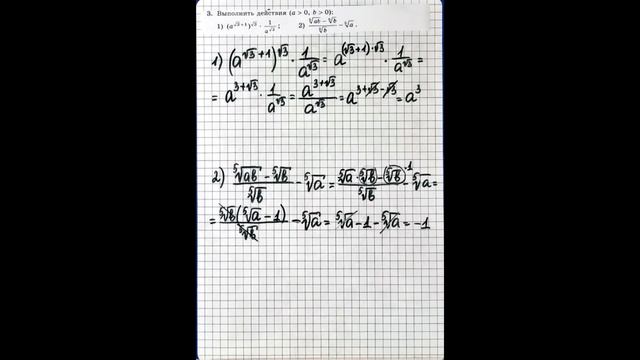 3. Выполнить действия (a > 0, b > 0):
1) (a^{√3+1})^{√3} · 1/a^{√3} ; 2) (⁵√ab − ⁵√b)/⁵√b − ⁵√a .
1) (a^{√3+1})^{√3} · 1/a^{√3} = a^{(√3+1)·√3} · 1/a^{√3} =
= a^{3+√3} · 1/a^{√3} = a^{3+√3}/a^{√3} = a^{3+√3−√3} = a^3
2) (⁵√ab − ⁵√b)/⁵√b − ⁵√a = (⁵√a · ⁵√b − ⁵√b ·1)/⁵√b − ⁵√a =
= ⁵√b(⁵√a − 1)/⁵√b − ⁵√a = ⁵√a − 1 − ⁵√a = −1